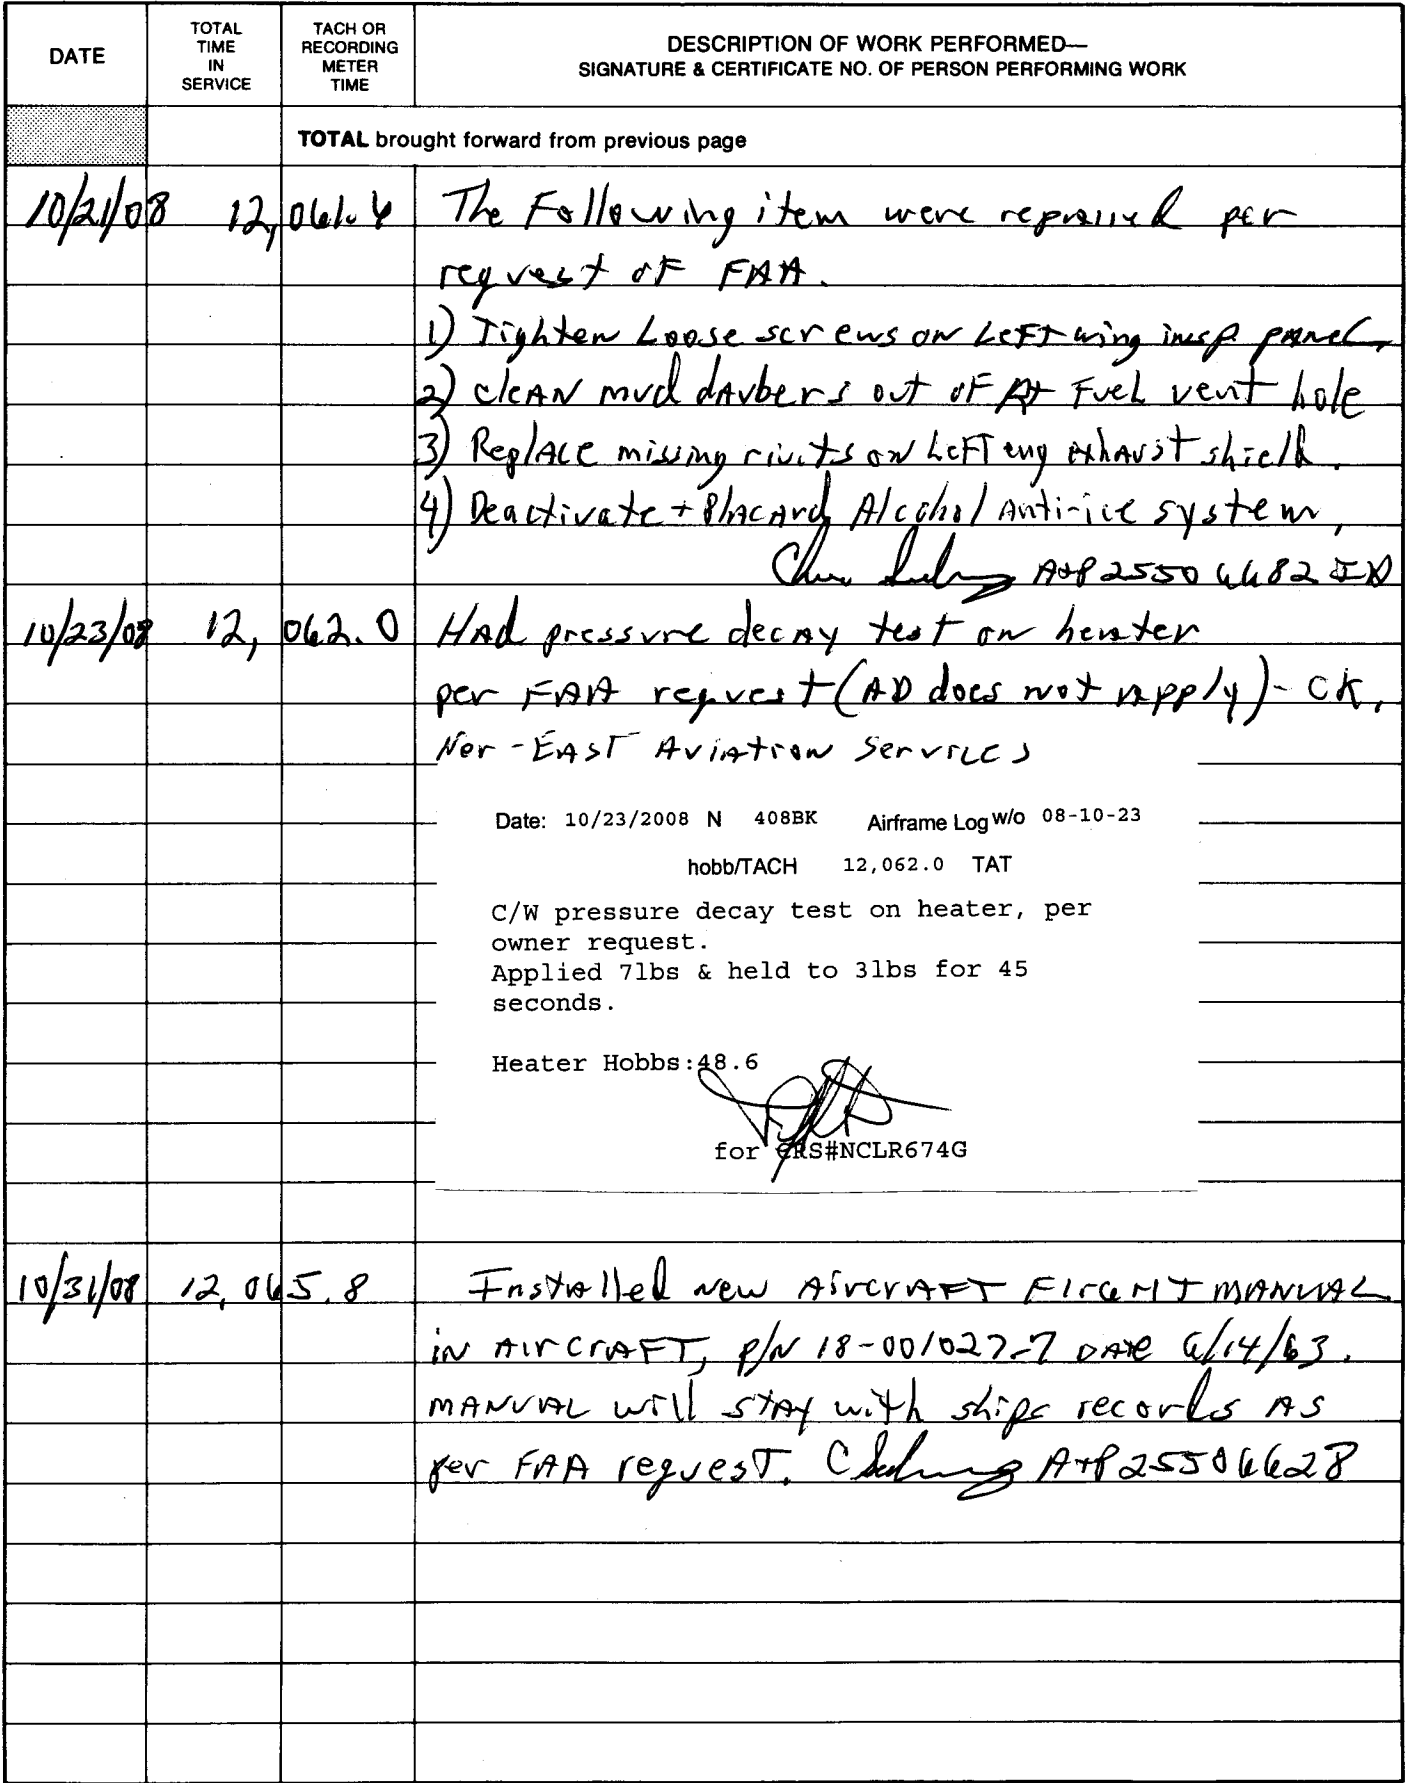 DATE
TOTAL TIME IN SERVICE
TACH OR RECORDING METER TIME
DESCRIPTION OF WORK PERFORMED—
SIGNATURE & CERTIFICATE NO. OF PERSON PERFORMING WORK
TOTAL brought forward from previous page
10/21/08 12,061.4 The Following item were repaired per
request of FAA.
1) Tighten Loose screws on Left wing insp panel.
2) clean mud daubers out of Rt Fuel vent hole
3) Replace missing rivits on Left eng exhaust shield.
4) Deactivate + Placard Alcohol Anti-ice system,
A+P 2550
10/23/08 12,062.0 Had pressure decay test on heater
per FAA request (AD does not apply) - CK.
Nor-East Aviation Services
Date: 10/23/2008 N 408BK Airframe Log w/o 08-10-23
hobb/TACH 12,062.0 TAT
C/W pressure decay test on heater, per
owner request.
Applied 7lbs & held to 3lbs for 45
seconds.
Heater Hobbs:48.6
for CRS#NCLR674G
10/31/08 12,065.8 Installed new Aircraft Flight Manual
in Aircraft, P/N 18-001027-7 Date 6/14/63.
Manual will stay with ships records as
per FAA request. A+P 25506628